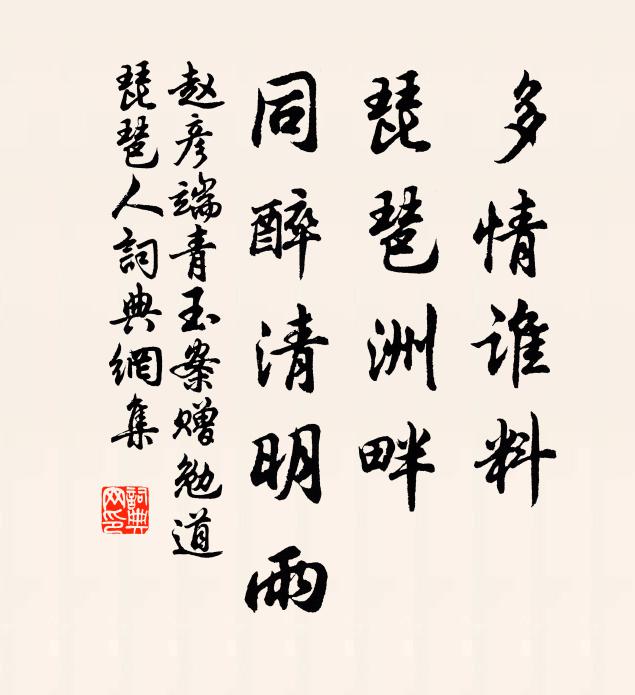 多情谁料
琵琶洲畔
同醉清明雨
赵彦端青玉案赠勉道
琵琶人詞典網集
詞典网印